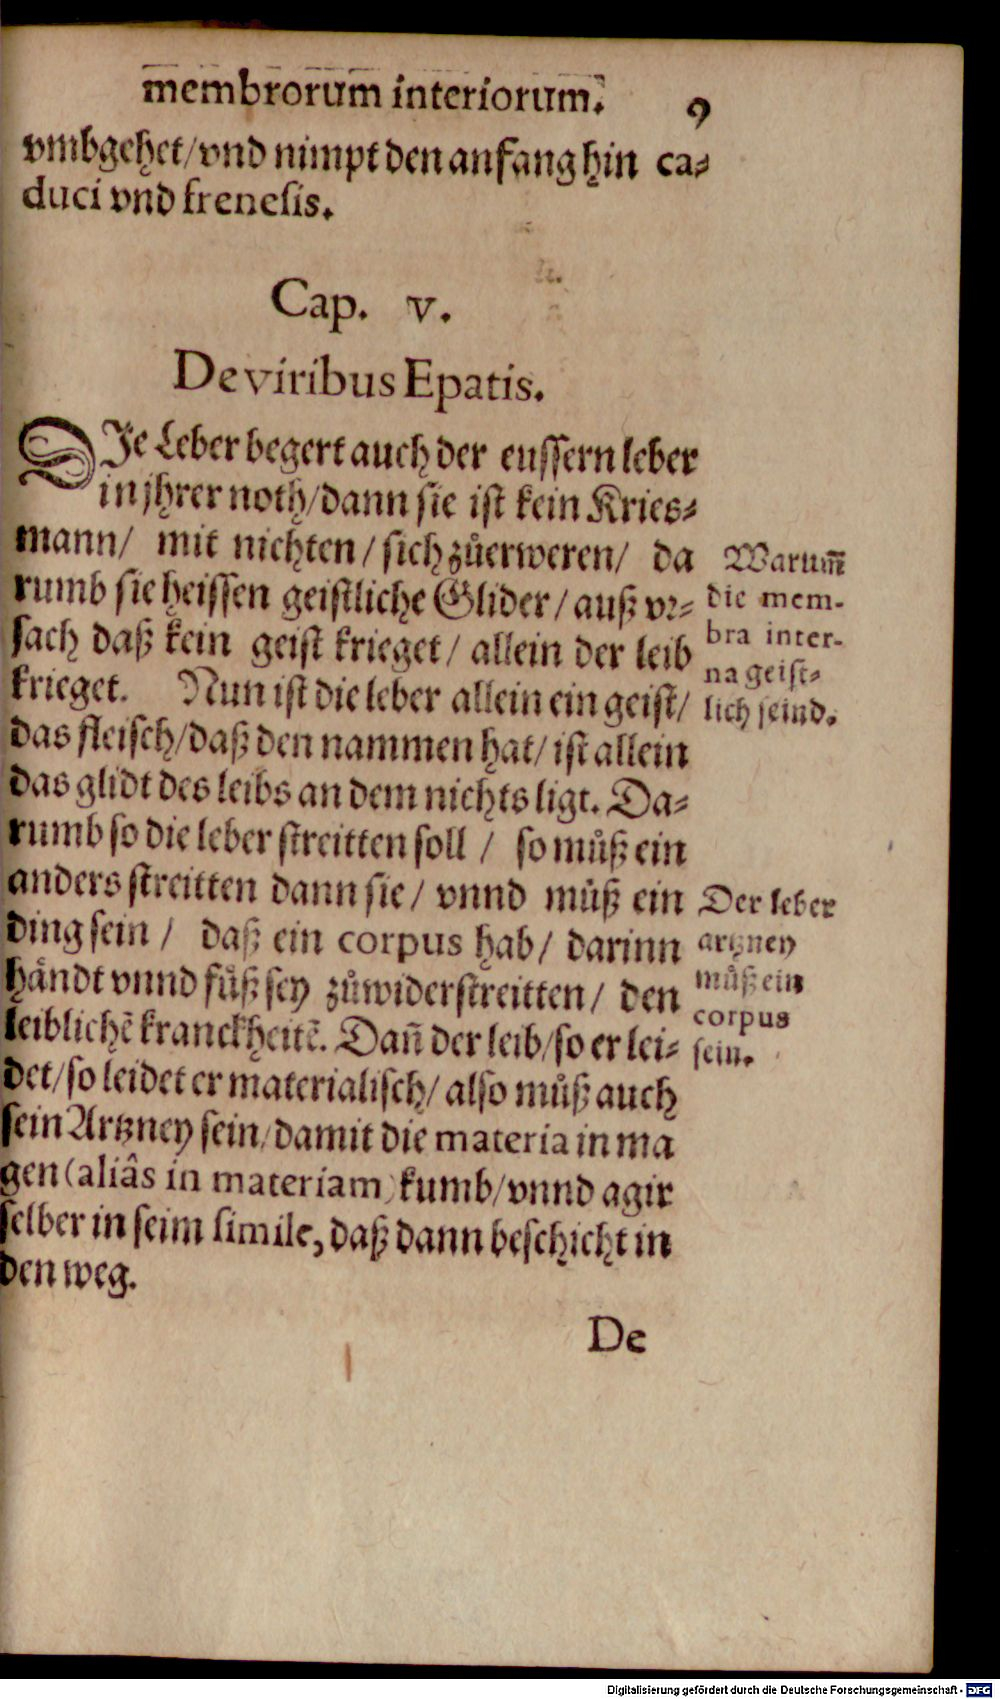 membrorum interiorum. 9
vmbgehet/vnd nimpt den anfang hin ca-
duci vnd frenesis.
Cap. v.
De viribus Epatis.
DIe Leber begert auch der eussern leber
in jhrer noth/dann sie ist kein Kries-
mann/ mit nichten/sich zůerweren/ da
rumb sie heissen geistliche Glider/auß vr-
sach daß kein geist krieget/ allein der leib
krieget. Nun ist die leber allein ein geist/
das fleisch/daß den nammen hat/ist allein
das glidt des leibs an dem nichts ligt. Da-
rumb so die leber streitten soll / so můß ein
anders streitten dann sie/ vnnd můß ein
ding sein / daß ein corpus hab/ darinn
håndt vnnd fůß sey zůwiderstreitten/ den
leiblichẽ kranckheitẽ. Dañ der leib/so er lei-
det/so leidet er materialisch/also můß auch
sein Artzney sein/damit die materia in ma
gen(aliâs in materiam)kumb/vnnd agir
selber in seim simile, daß dann beschicht in
den weg.
De
Warum̃
die mem-
bra inter-
na geist-
lich seind.
Der leber
artzney
můß ein
corpus
sein.
Digitalisierung gefördert durch die Deutsche Forschungsgemeinschaft - DFG